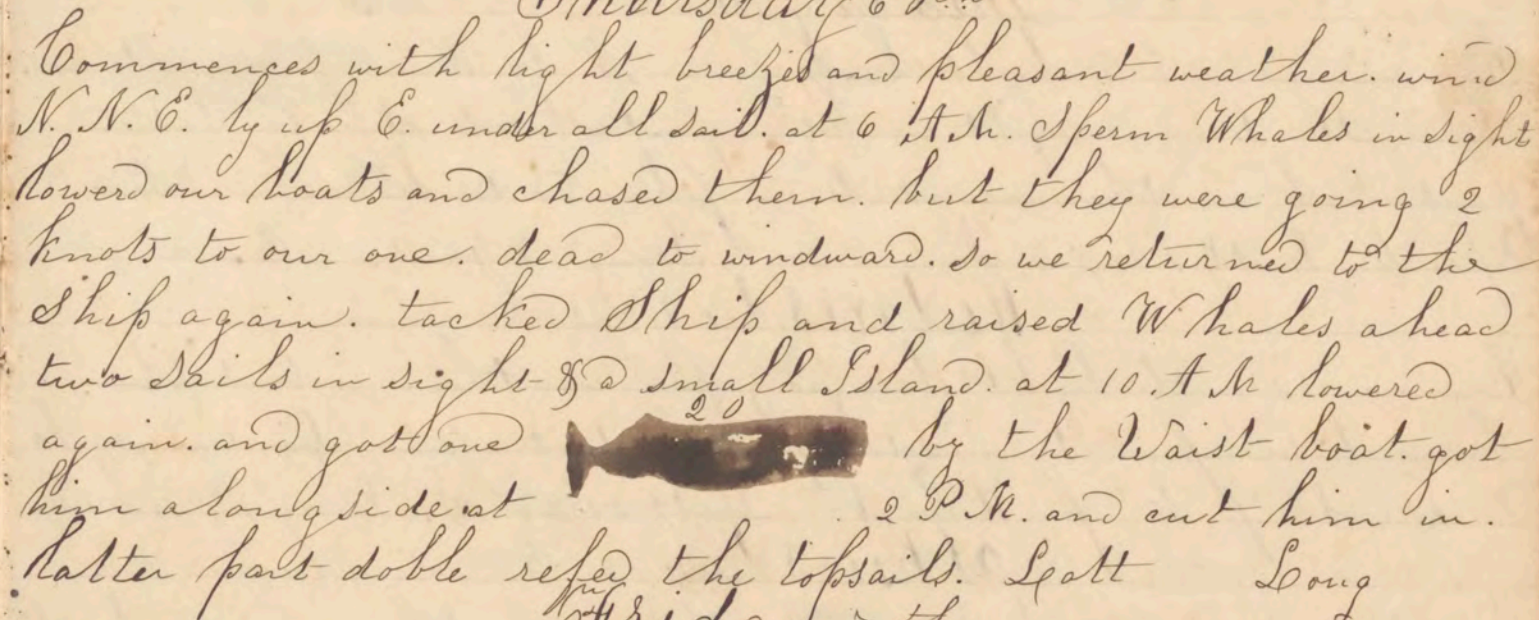 Thursday
Commences with light breezes and pleasant weather. wind
N. N. E. ly up E. under all sail. at 6 A.M. Sperm Whales in sight
lowerd our boats and chased them. but they were going 2
knots to our one. dead to windward. so we returned to the
Ship again. tacked Ship and raised Whales ahead
two Sails in sight & a small Island. at 10. A M lowered
again. and got one 20 by the Waist boat. got
him alongside at 2 P.M. and cut him in.
latter part doble refed the topsails. Latt Long